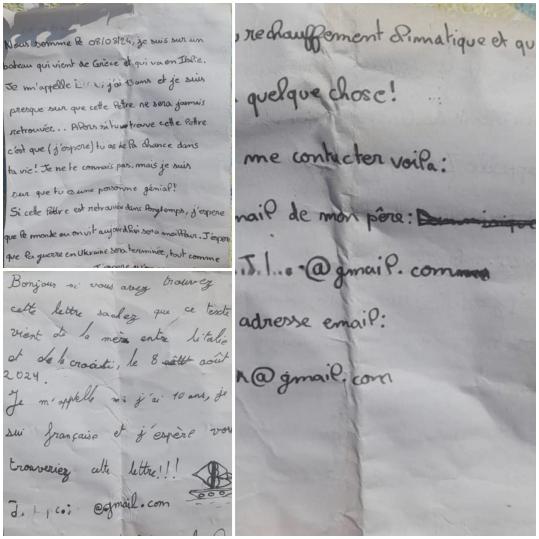 Nous somme le 08/08/24, je suis sur un
bateau qui vient de Grèce et qui va en Italie.
Je m'appelle j'ai 13 ans et je suis
presque sur que cette lettre ne sera jamais
retrouvée... Alors si tu trouve cette lettre
c'est que (j'espère) tu as de la chance dans
ta vie! Je ne te connais pas, mais je suis
sur que tu es une personne génial!
Si cette lettre est retrouvée dans longtemps, j'espère
que le monde ou on vit aujourd'hui sera meilleur. J'espère
que la guerre en Ukraine sera terminée, tout comme
Bonjour si vous avez trouvez
cette lettre sachez que ce texte
vient de la mèr entre l'italie
et de la croasti, le 8 août
2024.
Je m'appelle j'ai 10 ans, je
sui française et j'espère vou
trouveriez cette lettre!!!
@gmail.com
rechauffement climatique et qu
quelque chose!
me contacter voila:
mail de mon père:
.J.l...@gmail.com
adresse email:
@gmail.com